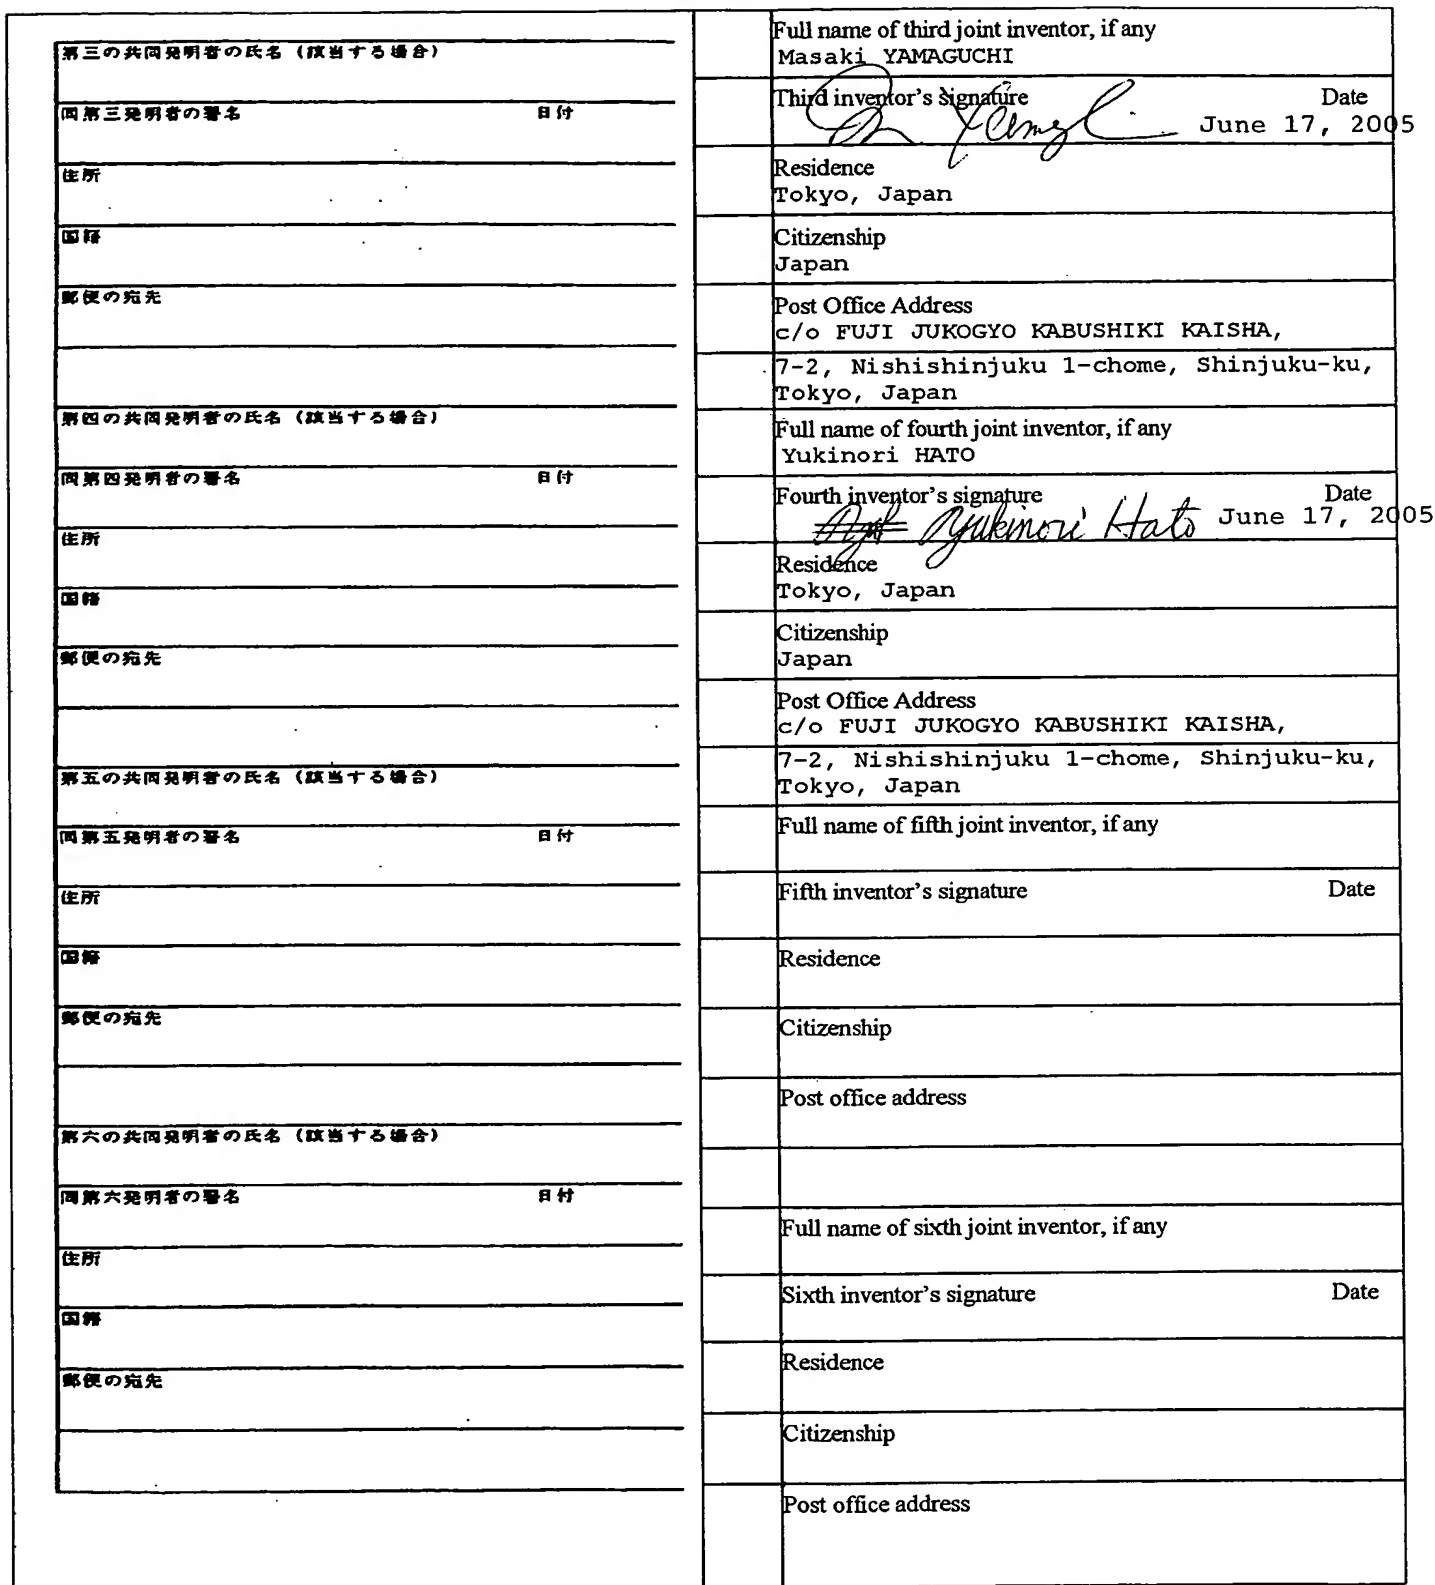 第三の共同発明者の氏名（該当する場合）
同第三発明者の署名 日付
住所
国籍
郵便の宛先
第四の共同発明者の氏名（該当する場合）
同第四発明者の署名 日付
住所
国籍
郵便の宛先
第五の共同発明者の氏名（該当する場合）
同第五発明者の署名 日付
住所
国籍
郵便の宛先
第六の共同発明者の氏名（該当する場合）
同第六発明者の署名 日付
住所
国籍
郵便の宛先
Full name of third joint inventor, if any
Masaki YAMAGUCHI
Third inventor's signature Date
June 17, 2005
Residence
Tokyo, Japan
Citizenship
Japan
Post Office Address
c/o FUJI JUKOGYO KABUSHIKI KAISHA,
7-2, Nishishinjuku 1-chome, Shinjuku-ku,
Tokyo, Japan
Full name of fourth joint inventor, if any
Yukinori HATO
Fourth inventor's signature Date
Yukinori Hato June 17, 2005
Residence
Tokyo, Japan
Citizenship
Japan
Post Office Address
c/o FUJI JUKOGYO KABUSHIKI KAISHA,
7-2, Nishishinjuku 1-chome, Shinjuku-ku,
Tokyo, Japan
Full name of fifth joint inventor, if any
Fifth inventor's signature Date
Residence
Citizenship
Post office address
Full name of sixth joint inventor, if any
Sixth inventor's signature Date
Residence
Citizenship
Post office address